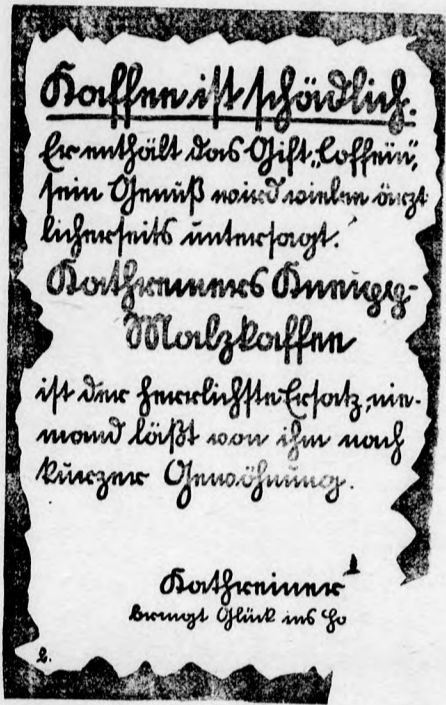 Kaffee ist schädlich.
Er enthält das Gift „Coffein“,
sein Genuß wird vielen ärzt
licherseits untersagt.
Kathreiners Kneipp-
Malzkaffee
ist der herrlichste Ersatz, nie-
mand läßt von ihm nach
kurzer Gewöhnung.
Kathreiner
bringt Glück ins Ha
2.